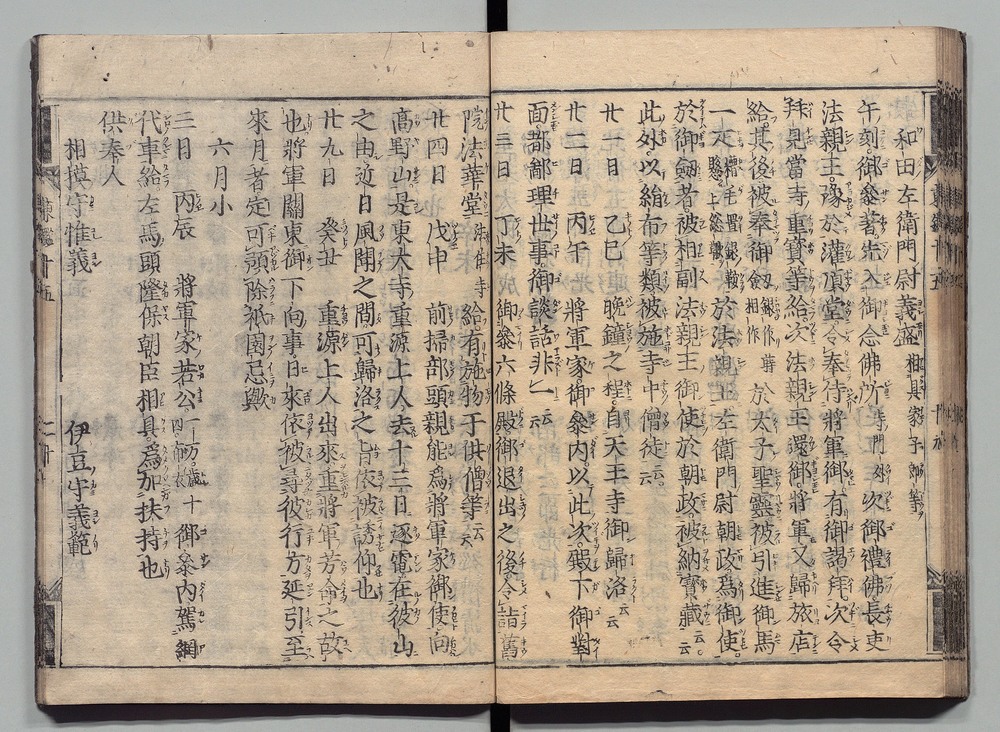 和田左衛門尉義盛 相具家子郎等
午刻御參著先在御念佛所 寺門外 次御禮佛長吏
法親王豫於灌頂堂令奉待將軍御有御謁拜次令
拜見當寺重寶等給次法親王還御將軍又歸旅店
給其後被奉御劔 銀作蒔 相作 於太子聖靈被引進御馬
一疋 於法親王左衛門尉朝政爲御使
於御劔者被相副法親王御使於朝政被納寶藏云云
此外以絹布等類被施寺中僧徒云云
廿一日 乙巳 晚鐘之程自天王寺御歸洛云云
廿二日 丙午 將軍家御參内以此次殿下御對
面都鄙理世事御談話非一云云
廿三日 丁未 御參六條殿御退出之後令詣舊
院法華堂 法住寺 給有施物于供僧等云云
廿四日 戊申 前掃部頭親能爲將軍家御使向
高野山是東大寺重源上人去十三日逐電在彼山
之由近日風聞之間可歸洛之旨依被誘仰也
廿九日 癸丑 重源上人出來重將軍芳命之故
也將軍關東御下向事日來依被尋彼行方延引至
來月者定可顎除祇園忌歟
六月小
三日 丙辰 將軍家若公 十四歳 御參内駕網
代車給左馬頭隆保朝臣相具爲加扶持也
供奉人
相摸守惟義 伊豆守義範